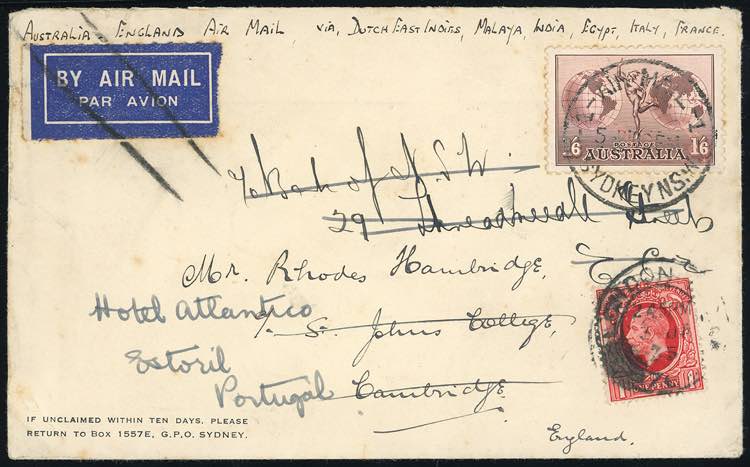 Australia – England Air Mail, via, Dutch East Indies, Malaya, India, Egypt, Italy, France.
BY AIR MAIL
PAR AVION
AIR MAIL
SYDNEY N.S.W
1/6 POSTAGE 1/6
AUSTRALIA
c/o Bank of N.S.W.
29 Threadneedle Street
E.C.2
Mr. Rhodes Hambridge,
Hotel Atlantico
c/o St. Johns College,
Estoril
Portugal
Cambridge
England.
LONDON
ONE PENNY
IF UNCLAIMED WITHIN TEN DAYS, PLEASE
RETURN TO BOX 1557E, G.P.O. SYDNEY.